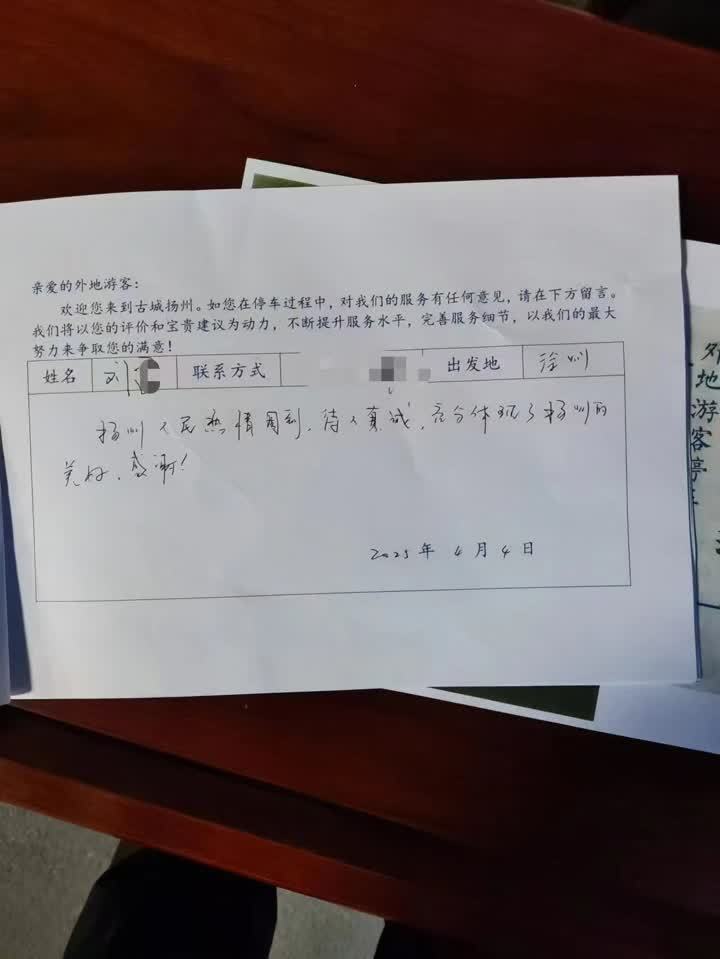 亲爱的外地游客：
欢迎您来到古城扬州。如您在停车过程中，对我们的服务有任何意见，请在下方留言。
我们将以您的评价和宝贵建议为动力，不断提升服务水平，完善服务细节，以我们的最大
努力来争取您的满意！
姓名 刘 联系方式 出发地 徐州
扬州人民热情周到，待人真诚，充分体现了扬州的
美好，感谢！
2025年 4月4日
外地游客停车